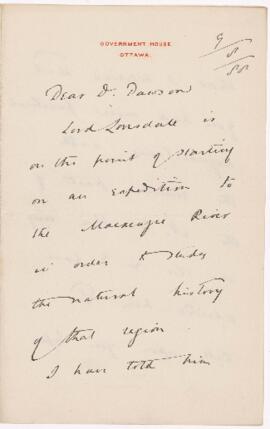 GOVERNMENT HOUSE
OTTAWA.
9/8/88
Dear Dr Dawson
Lord Lonsdale is
on the point of starting
on an expedition to
the Mackenzie River
in order to study
the natural history
of that region.
I have told him